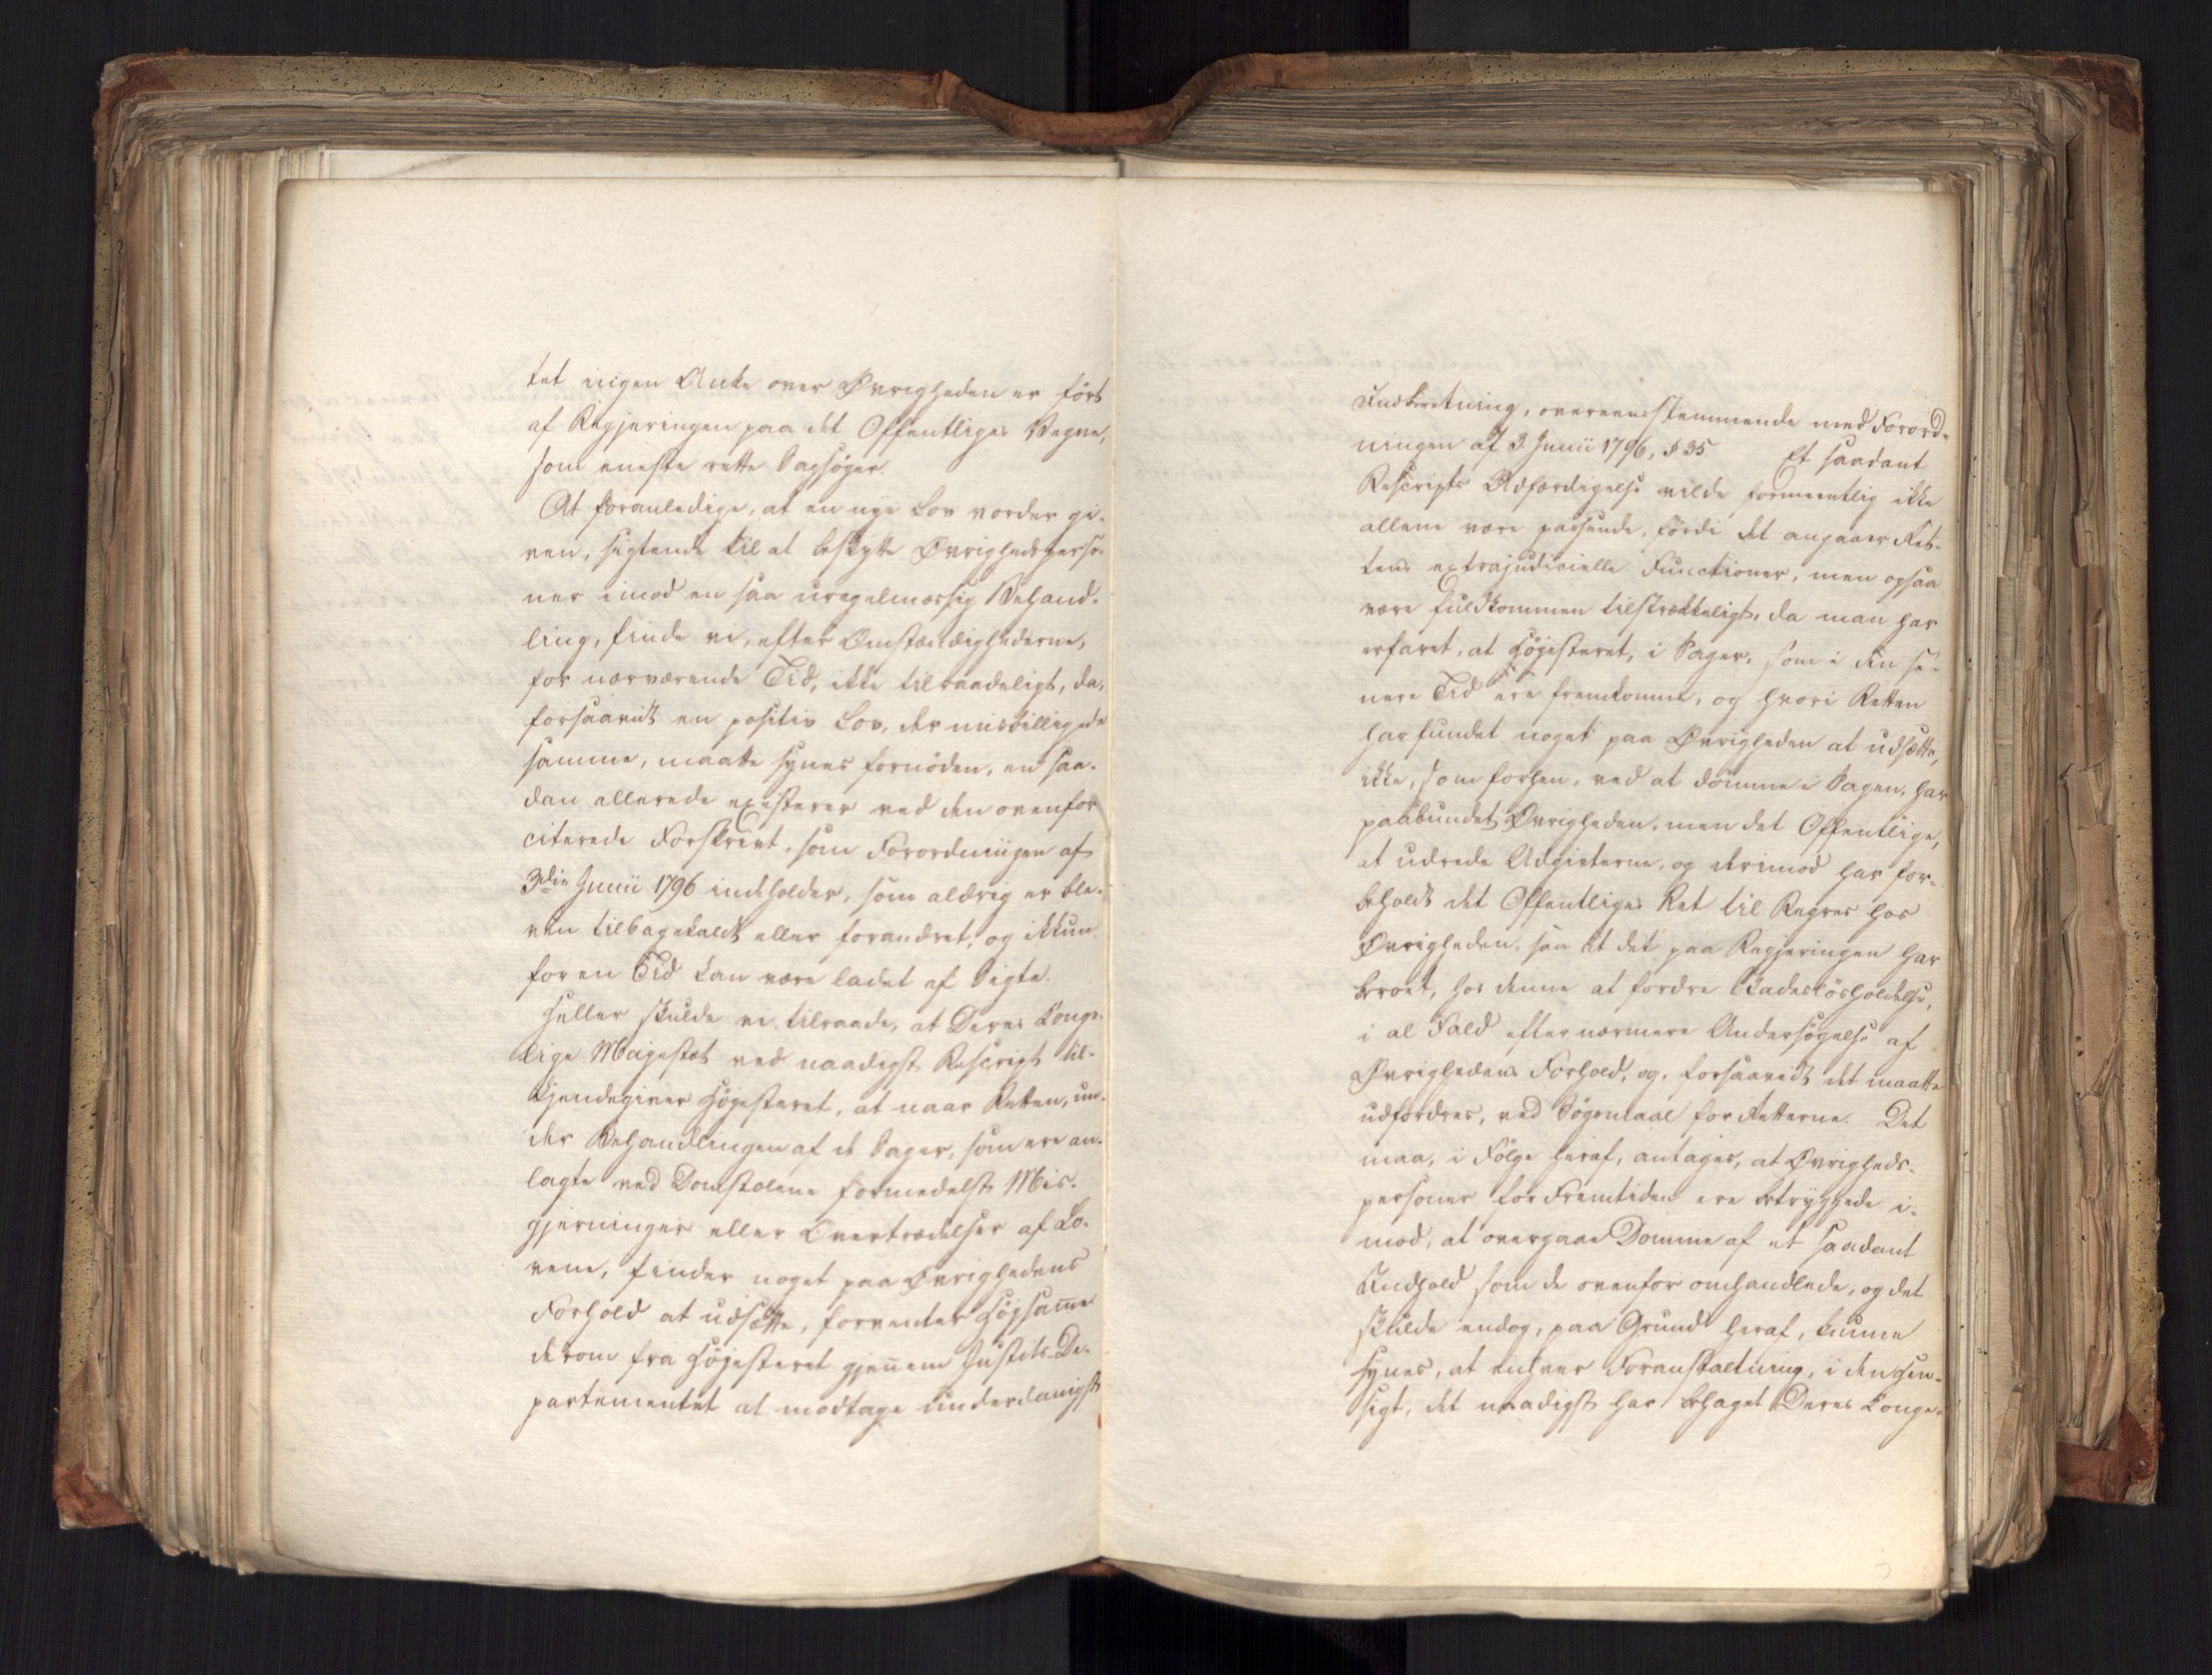 tet ingen Anke over Øvrigheden er ført
af Regjeringen paa det Offentliges Vegne,
som eneste rette Sagsøger.
At foranledige, at en nye Lov vorder gi-
ven, sigtende til at beskytte Øvrighedsperso-
ner imod en saa uregelmæssig Behand-
ling, finde vi, efter Omstændighederne,
for nærværende Tid, ikke tilraadeligt, da,
forsaavidt en positiv Lov, der misbilligede
samme, maatte synes fornöden, en saa-
dan allerede existerer ved den ovenfor
citerede Forskrivt, som Forordningen af
3die Junii 1796 indeholder, som aldrig er ble-
ven tilbagekaldt eller forandret, og ikkun
for en Tid kan være ladet af Sigte.
Heller skulde vi tilraade, at Deres Konge-
lige Majestæt ved naadigst Rescript til-
kjendegiver Höjesteret, at naar Retten, un-
der Behandlingen af de Sager, som ere an-
lagte ved Domstolene formedelst Mis-
gjerninger eller Overtrædelser af Lo-
vene, finder noget paa Øvrighedens
Forhold at udsætte, forventer Höjsamme
derom fra Höjesteret gjennem Justits-De-
partementet at modtage underdanigst
Indberetning, overeensstemmende med Forord-
ningen af 3 Junii 1796, § 35. Et saadant
Rescripts Udfærdigelse vilde formeentlig ikke
allene være passende, fördi det angaaer Ret-
tens extrajudicielle Functioner, men ogsaa
være fuldkommen tilstrækkeligt, da man har
erfaret, at Höjesteret, i Sager, som i den se-
nere Tid ere fremkomne, og hvori Retten
har fundet noget paa Øvrigheden at udsætte,
ikke, som forhen, ved at dömme i Sagen, har
paabundet Øvrigheden, men det Offentlige,
at udrede Udgivterne, og derimod har for-
beholdt det Offentliges Ret til Regres hos
Øvrigheden, saa at det paa Regjeringen har
beroet, hos denne at fordre Skadeslösholdelse,
i al Fald efter nærmere Undersögelse af
Øvrighedens Forhold, og, forsaavidt det maatte
udfordres, ved Sögsmaal for Retterne. Det
maa, i Fölge heraf, antages, at Øvrigheds-
personer for Fremtiden ere betryggede i-
mod, at overgaae Domme af et saadant
Indhold som de ovenfor omhandlede, og det
skulde endog, paa Grund heraf, kunne
synes, at enhver Foranstaltning, i den Hen-
sigt, det naadigst har behaget Deres Konge-